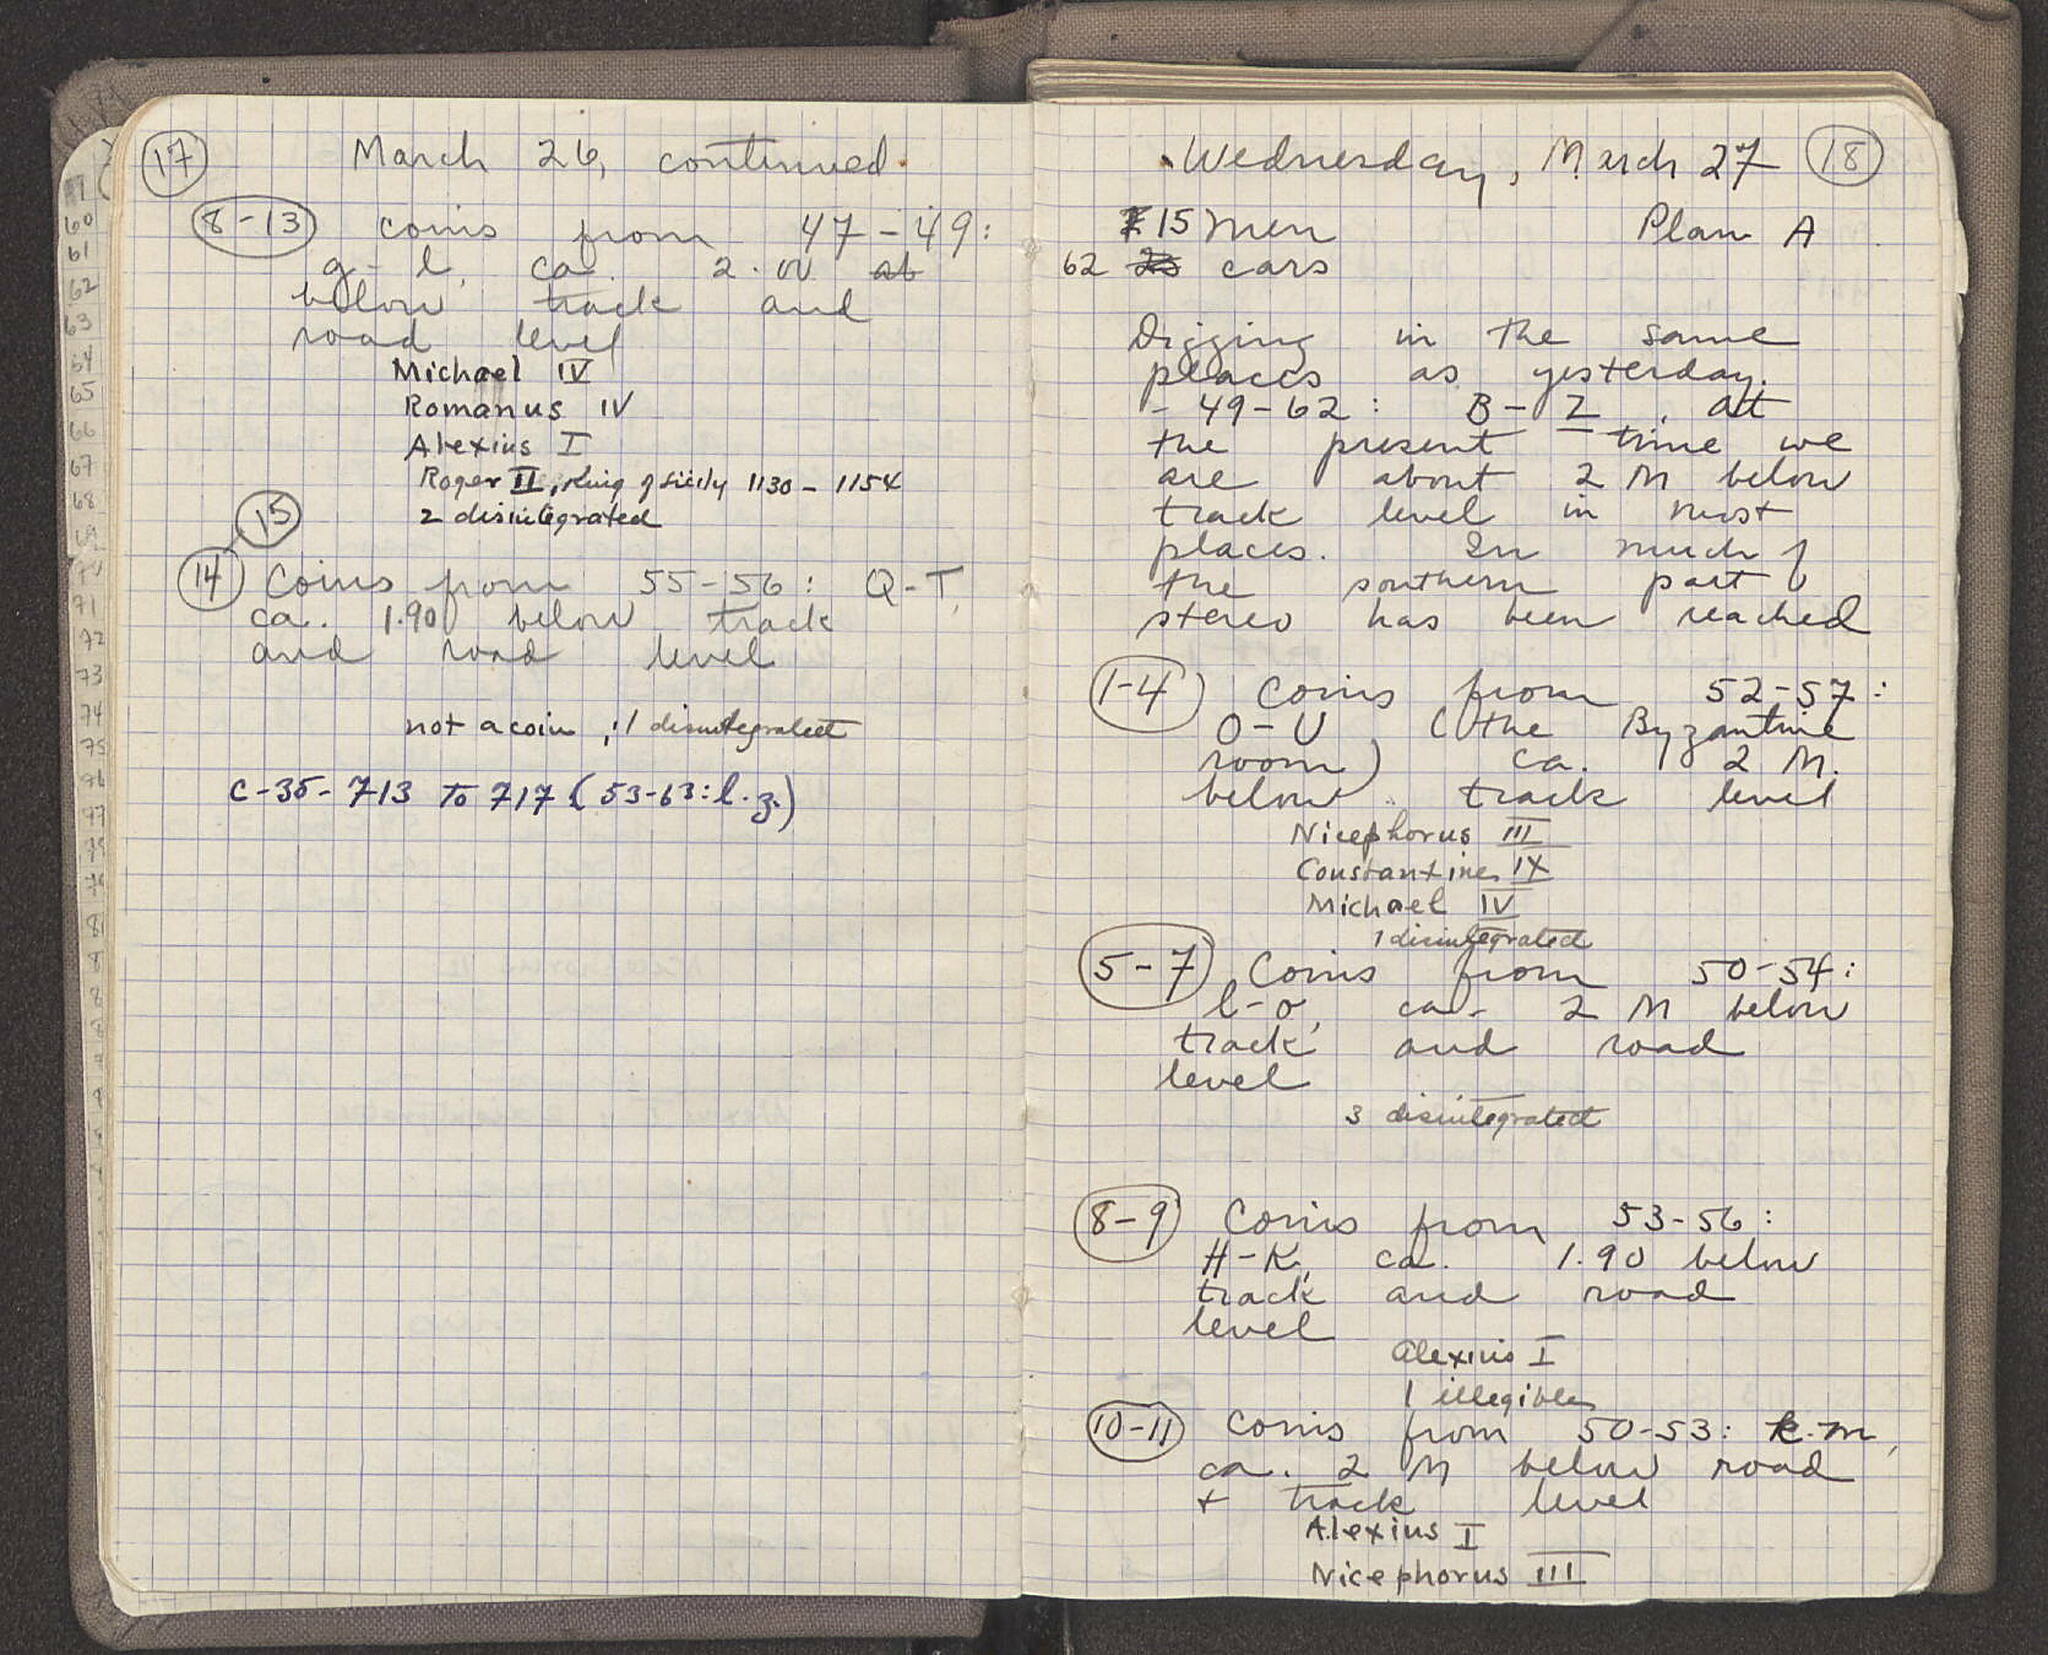 17
March 26, continued.
8-13 Coins from 47-49:
g-l, ca. 2.00 ab
below track and
road level
Michael IV
Romanus IV
Alexius I
Roger II, King of Sicily 1130-1154
2 disintegrated
15
14 Coins from 55-56: Q-T,
ca. 1.90 below track
and road level
not a coin, ; 1 disintegrated
C-35-713 To 717 (53-63: l.z.)
60
61
62
63
64
65
66
67
68
69
71
72
73
74
75
Wednesday, March 27 18
15 men Plan A
62 25 cars
Digging in the same
places as yesterday.
- 49-62: B-Z, at
the present time we
are about 2 M below
track level in most
places. In much of
the southern part
stereo has been reached
1-4 Coins from 52-57:
O-U (the Byzantine
room) ca. 2 M.
below track level
Nicephorus III
Constantine IX
Michael IV
1 disintegrated
5-7 Coins from 50-54:
l-o, ca. 2 M below
track and road
level
3 disintegrated
8-9 Coins from 53-56:
H-K, ca. 1.90 below
track and road
level
Alexius I
1 illegible
10-11 Coins from 50-53: k-m,
ca. 2 M below road
+ track level
Alexius I
Nicephorus III